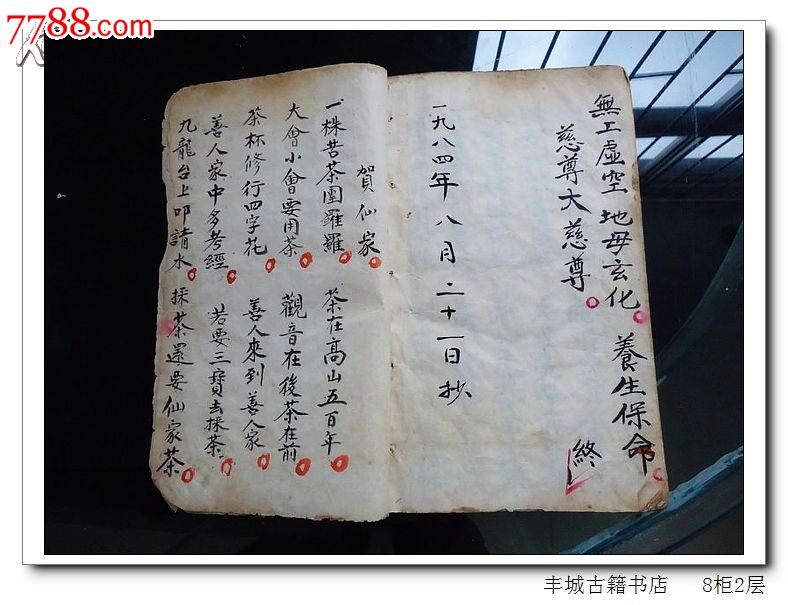 7788.com
無工虛空 地母玄化 養生保命
慈尊大慈尊
終
一九八四年八月二十一日抄
賀仙家
一株苦茶團羅羅 茶在高山五百年
大會小會要用茶 觀音在後茶在前
茶杯修行四字花 善人來到善人家
善人家中多考經 若要三寶去採茶
九龍台上叩請水 採茶還要仙家茶
丰城古籍书店 8柜2层